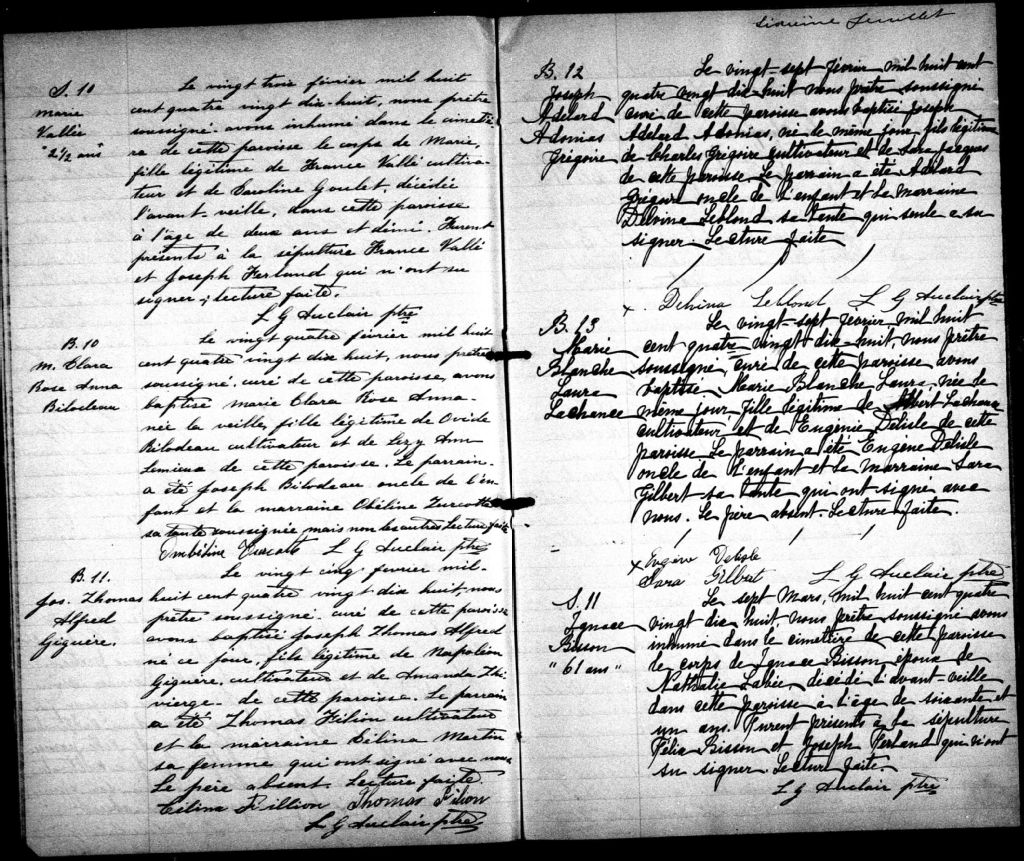 S. 10
Marie
Vallée
"2 1/2 ans"
Le vingt trois février mil huit
cent quatre vingt dix-huit, nous prêtre
soussigné avons inhumé dans le cimetiè
re de cette paroisse le corps de Marie,
fille légitime de France Vallé cultiva-
teur et de Caroline Goulet, décédée
l'avant-veille, dans cette paroisse
à l'âge de deux ans et demi. Furent
présents à la sépulture France Vallé
et Joseph Ferland qui n'ont su
signer; lecture faite.
L G Auclair ptre
B. 10
M. Clara
Rose Anna
Bilodeau
Le vingt quatre février mil huit
cent quatre vingt dix huit, nous prêtre
soussigné, curé de cette paroisse, avons
baptisé Marie Clara Rose Anna-
née la veille, fille légitime de Ovide
Bilodeau cultivateur et de Lizy Ann
Lemieux de cette paroisse. Le parrain-
a été Joseph Bilodeau oncle de l'en-
fant et la marraine Obéline Turcotte
sa tante soussignée mais non les autres lecture faite
Turcotte L G Auclair ptre
B. 11.
Jos. Thomas
Alfred
Giguère.
Le vingt cinq fevrier mil-
huit cent quatre vingt dix huit, nous
prêtre soussigné curé de cette paroisse
avons baptisé Joseph Thomas Alfred
né ce jour, fils légitime de Napoléon
Giguère, cultivateur et de Amanda Thi
vierge- de cette paroisse. Le parrain
a été Thomas Filion cultivateur
et la marraine Célina Martin
sa femme qui ont signé avec nous
Le père absent. Lecture faite
Célina Fillion Thomas Filion
L G Auclair ptre
sixième feuillet
B. 12
Joseph
Adelard
Adonias
Grégoire
Le vingt-sept février mil huit cent
quatre vingt dix-huit nous prêtre soussigné
curé de cette paroisse avons baptisé Joseph
Adelard Adonias, né le même jour, fils légitime
de Charles Grégoire cultivateur et de Sara Jacques
de cette paroisse. Le parrain a été Adelard
Grégoire oncle de l'enfant et la marraine
Delvina Leblond sa tante qui seule a su
signer. Lecture faite
x Delvina Leblond L G Auclair ptre
B. 13
Marie
Blanche
Laura
Lachance
Le vingt-sept février, mil huit
cent quatre vingt dix-huit, nous prêtre
soussigné, curé de cette paroisse avons
baptisé Marie Blanche Laura, née le
même jour, fille légitime de Albert Lachance
cultivateur et de Eugénie Delisle de cette
paroisse. Le parrain a été Eugène Delisle
oncle de l'enfant et la marraine Sara
Gilbert sa tante qui ont signé avec
nous. Le père absent. Lecture faite.
x Eugène Delisle
Sara Gilbert L G Auclair ptre
S. 11
Ignace
Bisson
"61 ans"
Le sept Mars, mil huit cent quatre
vingt dix huit, nous prêtre soussigné avons
inhumé dans le cimetière de cette paroisse
le corps de Ignace Bisson époux de
Nathalie décédé l'avant-veille
dans cette paroisse à l'âge de soixante et
un ans. Furent présents à la sépulture
Félix Bisson et Joseph Ferland qui n'ont
su signer. Lecture faite.
L G Auclair ptre